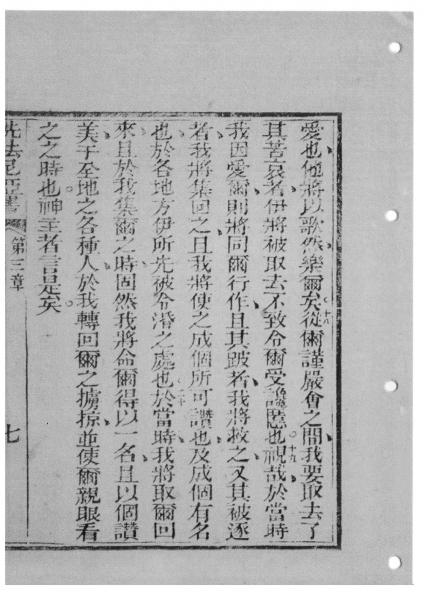 愛也他將以歌然樂爾矣從爾謹嚴會之間我要取去了
其苦哀者伊將被取去不致令爾受讒慝也視哉於當時
我因愛爾則將同爾行作且其跛者我將救之又其被逐
者我將集回之且我將使之成個所可讚也及成個有名
也於各地方伊所先被令㴽之處也於當時我將取爾回
來且於我集爾之時固然我將命爾得以一名且以個讚
美于全地之各種人於我轉回爾之擄掠並使爾親眼看
之之時也神主者言是矣
第三章
七